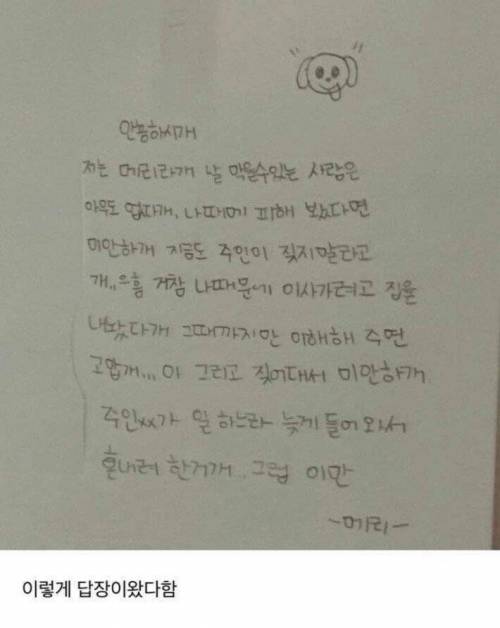 안뇽하시개
저는 메리라개 날 막을수있는 사람은
아무도 업다개, 나때메 피해 봤다면
미안하개 지금도 주인이 짖지말라고
개,,으흠 거참 나때문에 이사가려고 집을
내놨다개 그때까지만 이해해 주면
고맙개,,, 아 그리고 짖어대서 미안하개
주인xx가 일 하느라 늦게 들어 와서
혼내려 한거개.. 그럼 이만
-메리-
이렇게 답장이왔다함